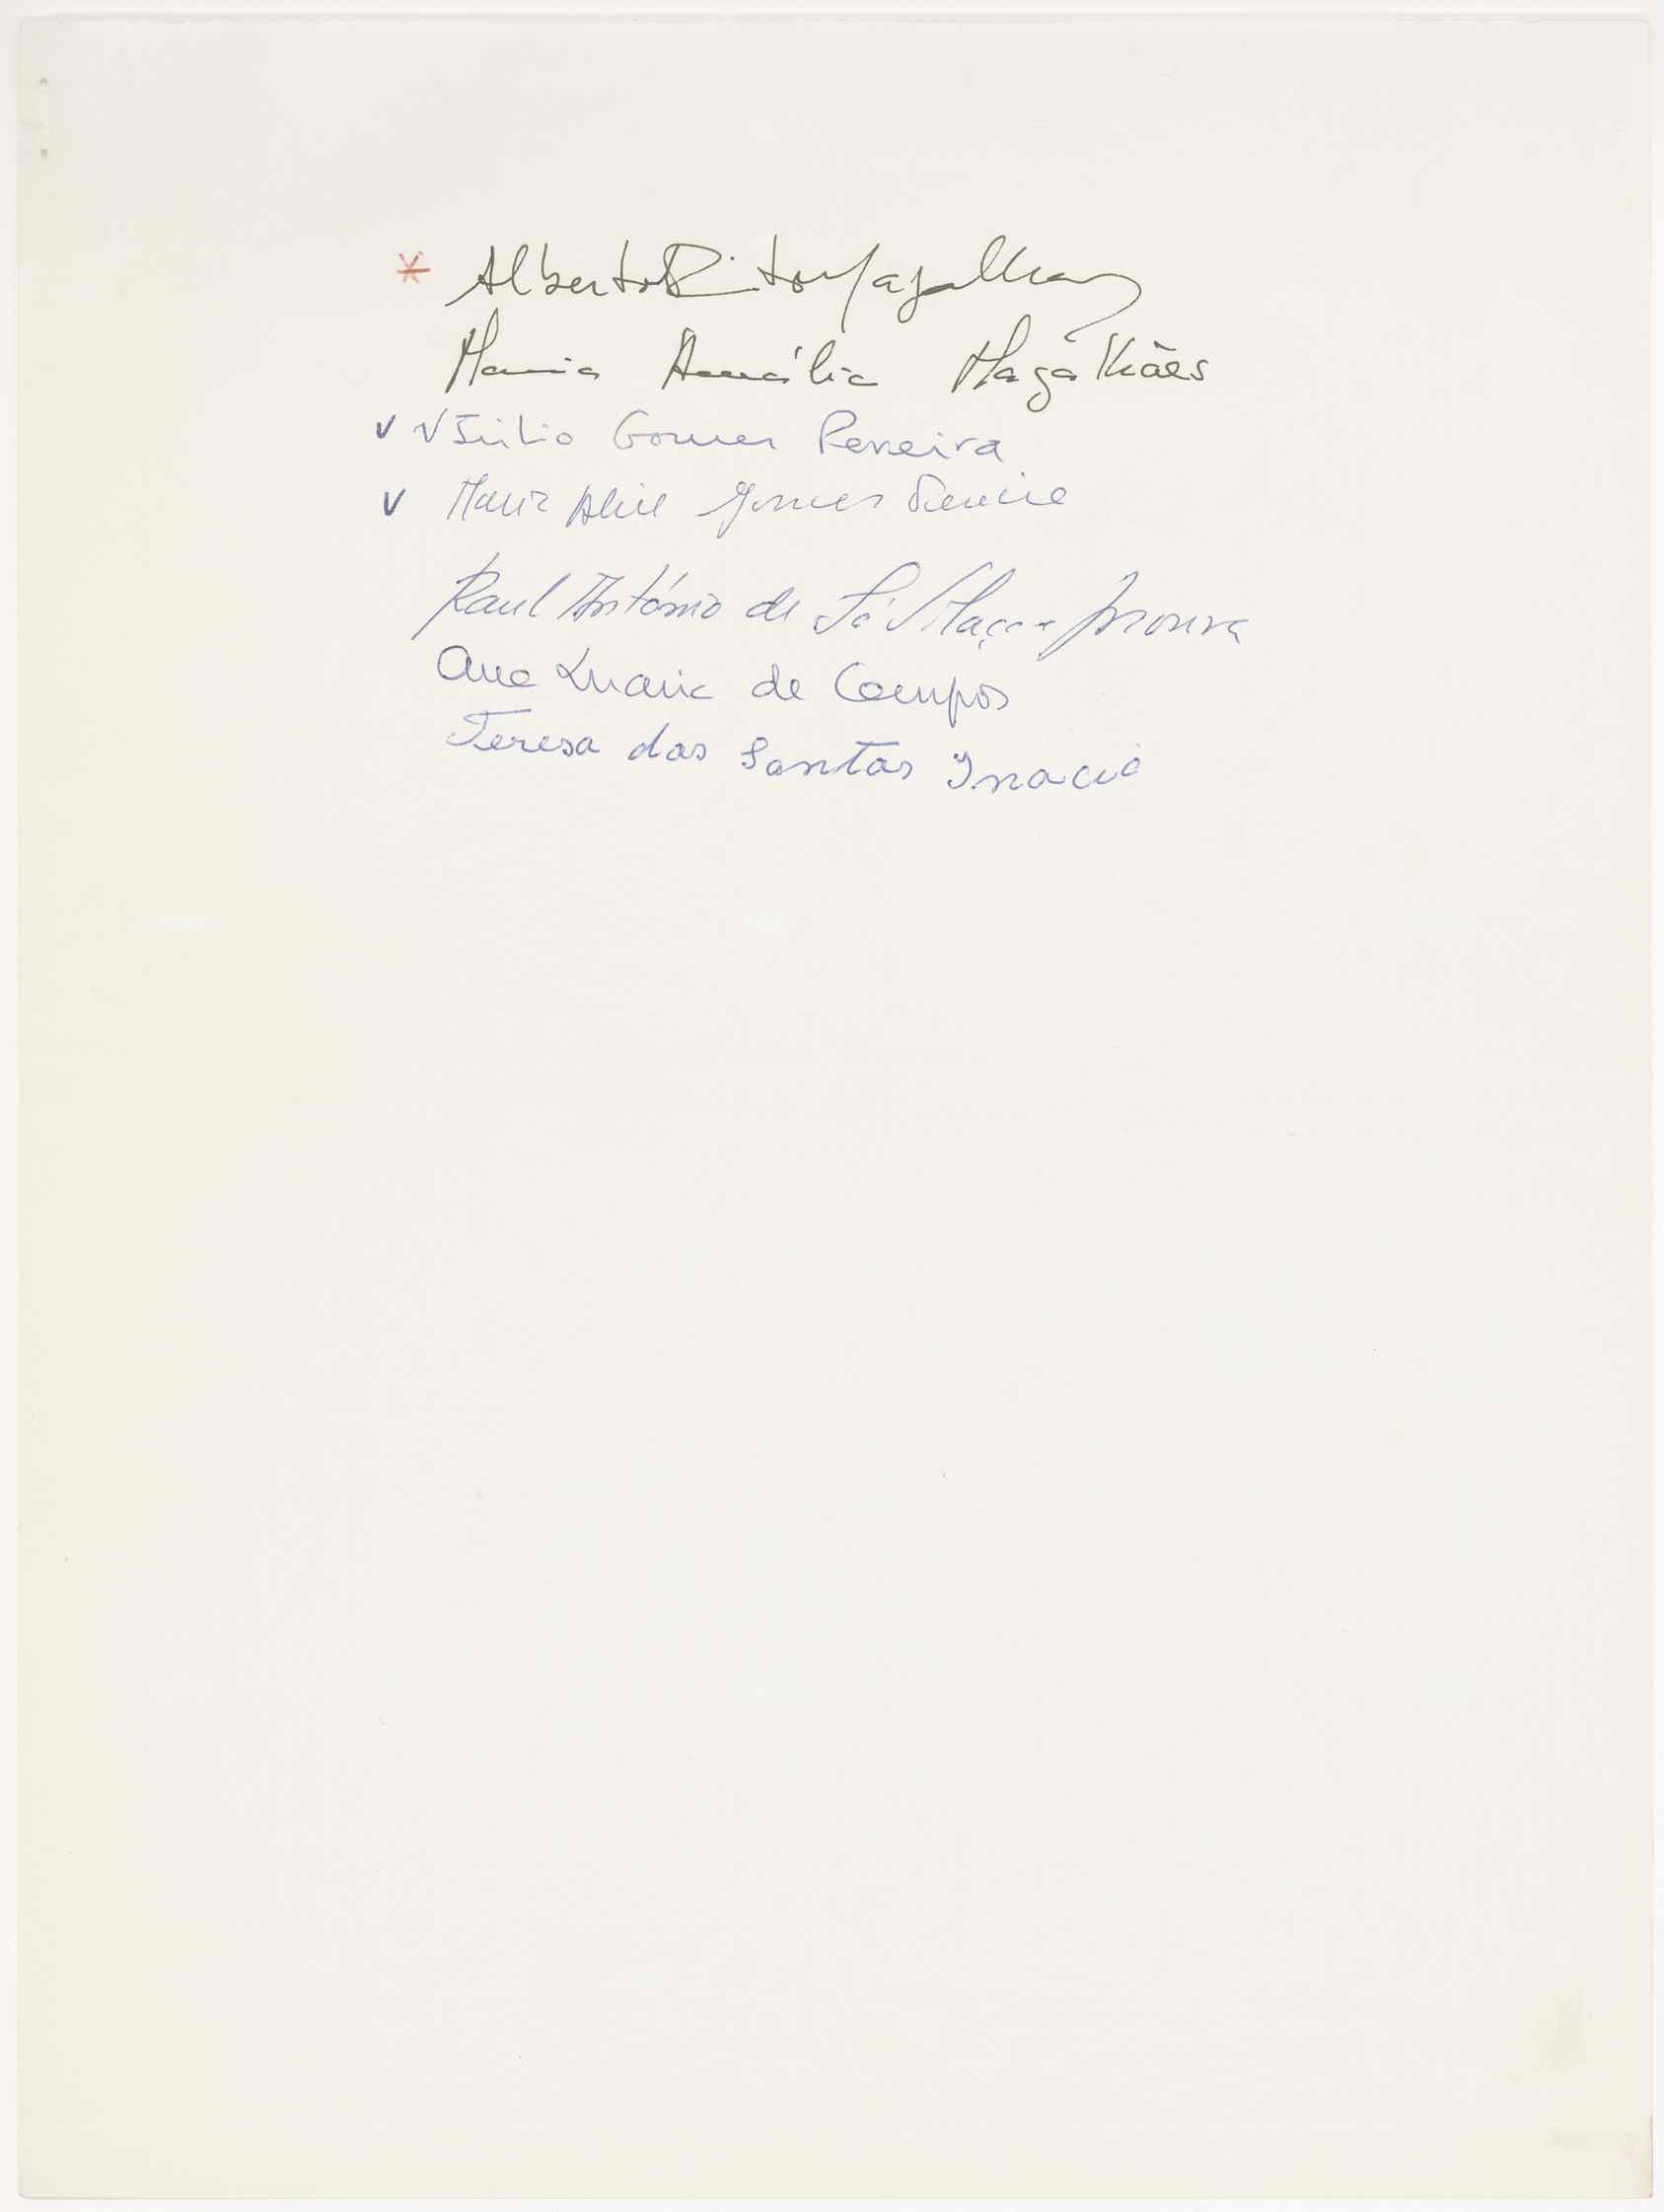 Alberto Pinto Magalhães
Maria Amália Magalhães
v v Júlio Gomes Pereira
v Maria Alice Gomes Pereira
Raul António de Sá Vilaça e Moura
Ana Maria de Campos
Teresa dos Santos Inacio